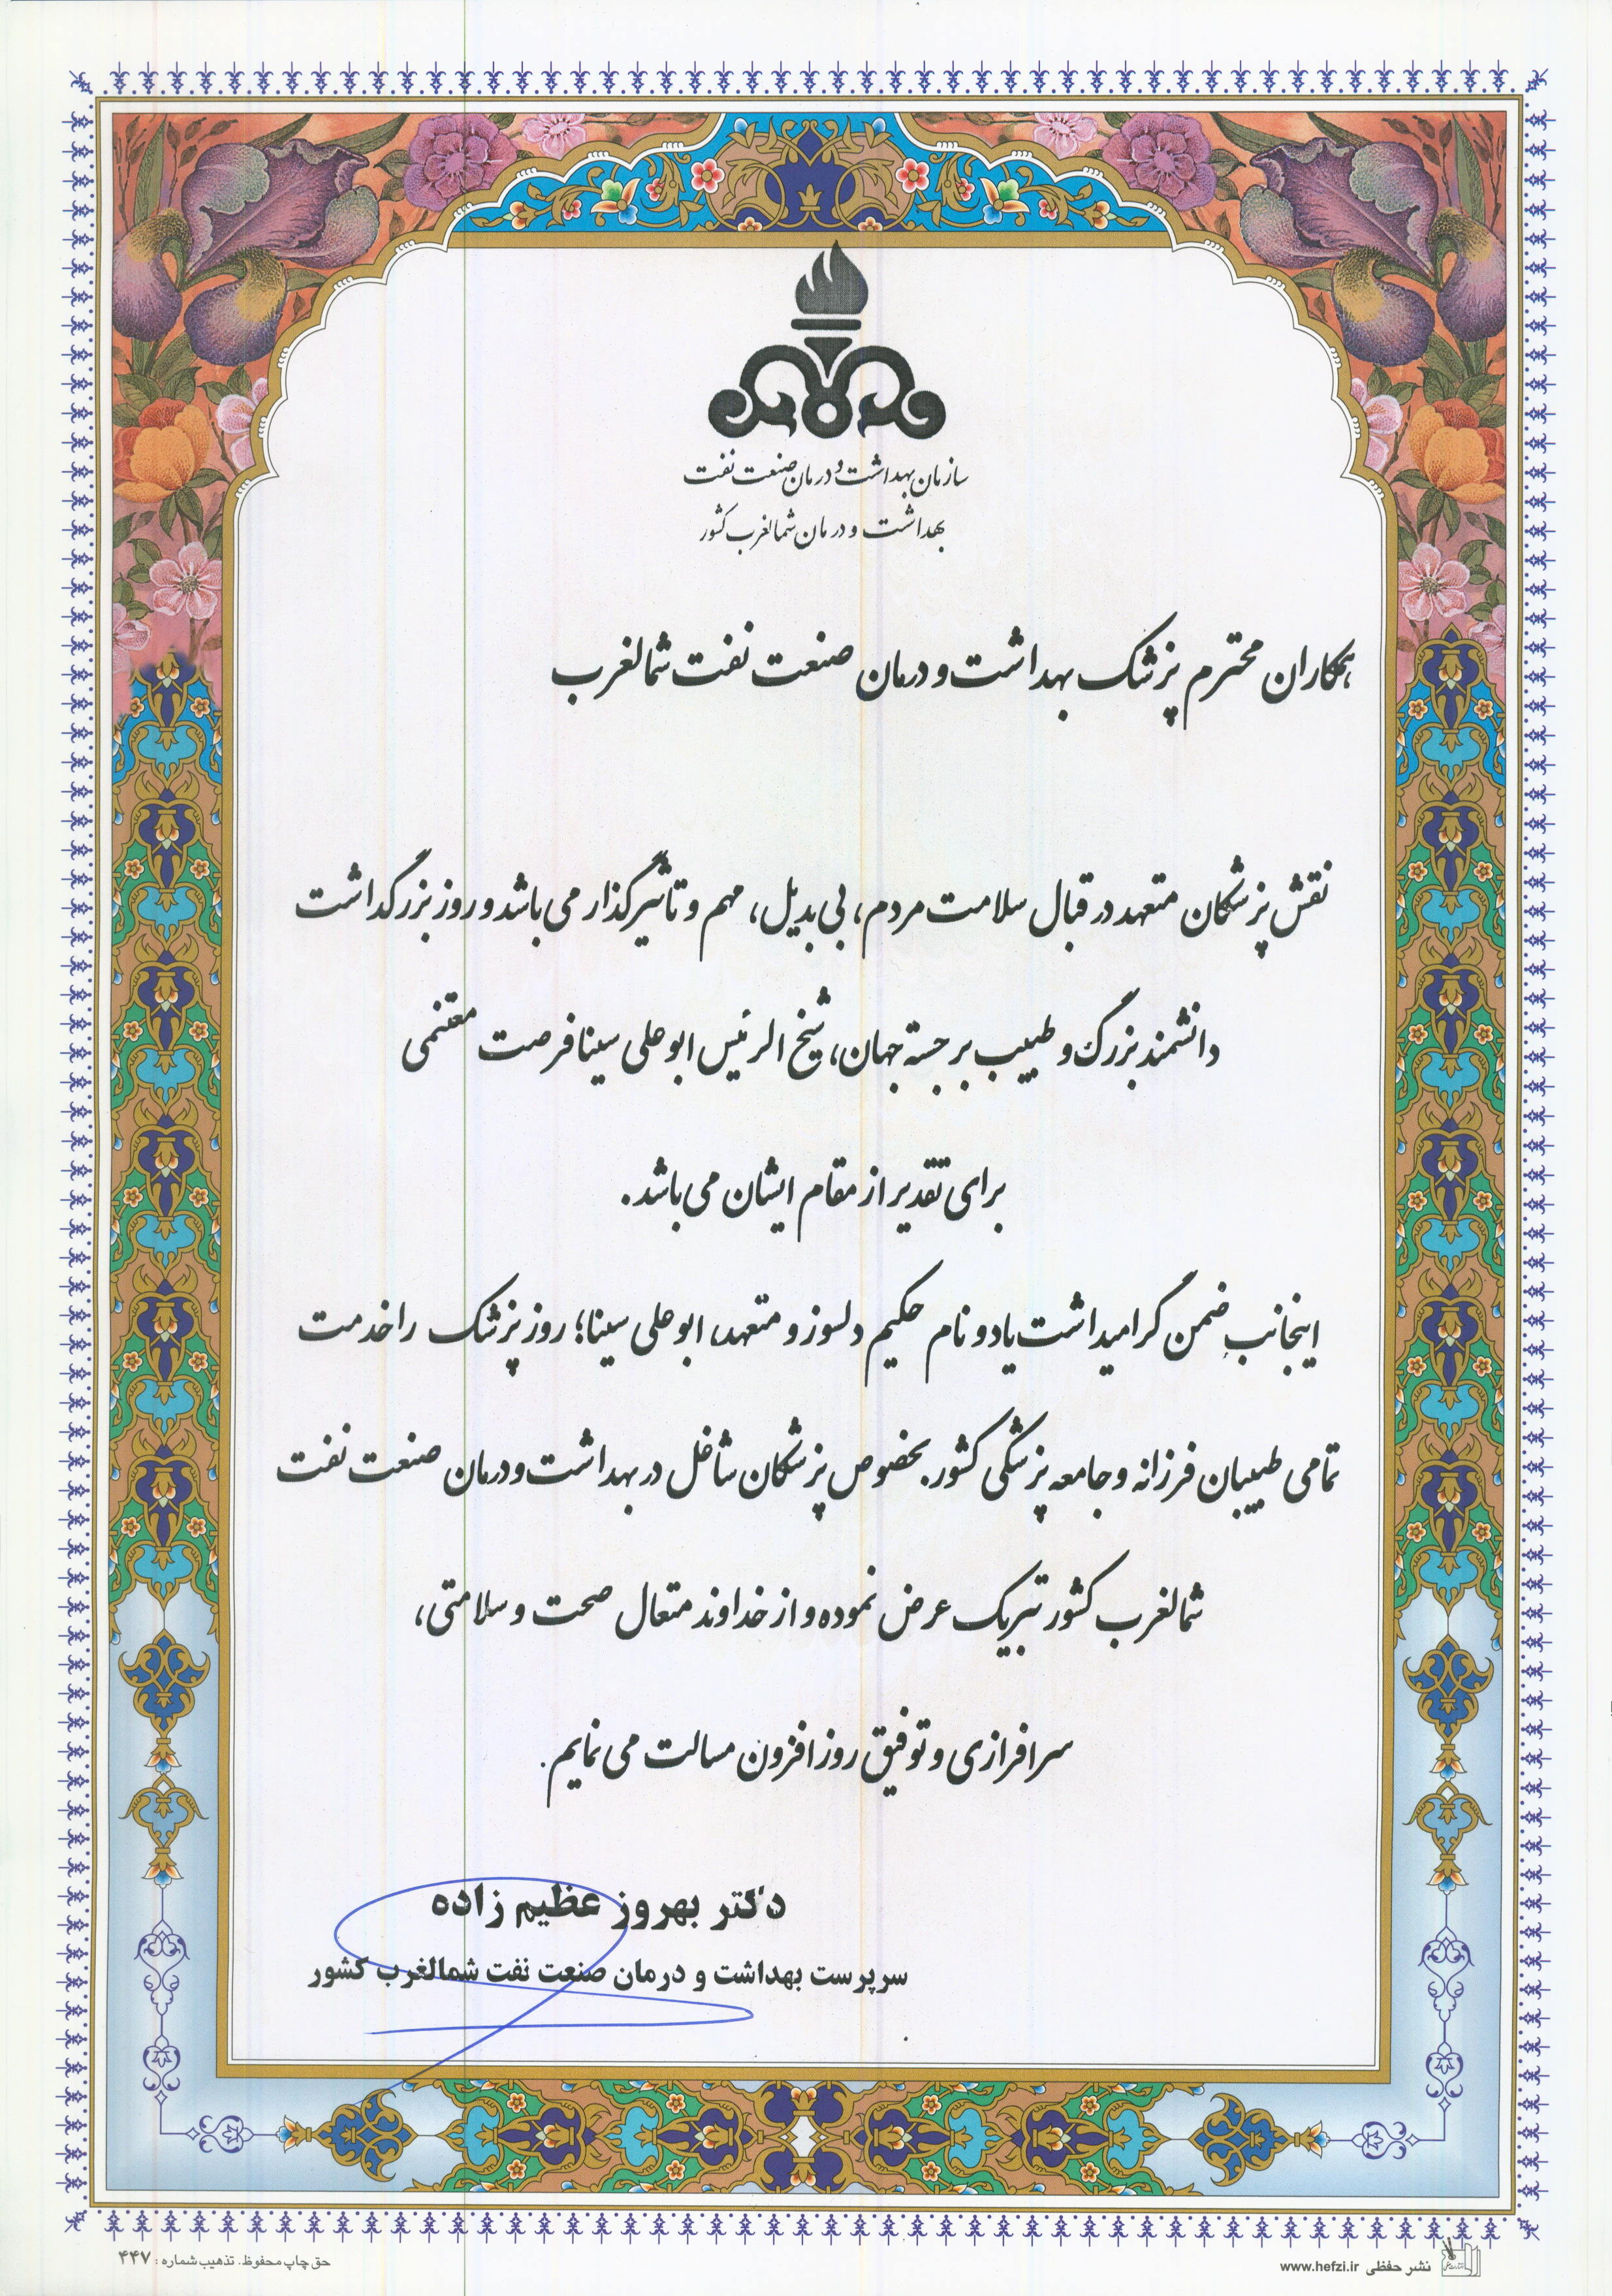 سازمان بهداشت و درمان صنعت نفت
بهداشت و درمان شمالغرب کشور
همکاران محترم پزشک بهداشت و درمان صنعت نفت شمالغرب
نقش پزشکان متعهد در قبال سلامت مردم، بی بدیل، مهم و تاثیرگذار می باشد و روز بزرگداشت
دانشمند بزرگ و طبیب برجسته جهان، شیخ الرئیس ابوعلی سینا فرصت مغتنمی
برای تقدیر از مقام ایشان می باشد.
اینجانب ضمن گرامیداشت یاد و نام حکیم دلسوز و متعهد، ابوعلی سینا؛ روز پزشک را خدمت
تمامی طبیبان فرزانه و جامعه پزشکی کشور. بخصوص پزشکان شاغل در بهداشت و درمان صنعت نفت
شمالغرب کشور تبریک عرض نموده و از خداوند متعال صحت و سلامتی،
سرافرازی و توفیق روزافزون مسالت می نمایم.
دکتر بهروز عظیم زاده
سرپرست بهداشت و درمان صنعت نفت شمالغرب کشور
نشر حفظی www.hefzi.ir
حق چاپ محفوظ. تذهیب شماره: ۴۴۷